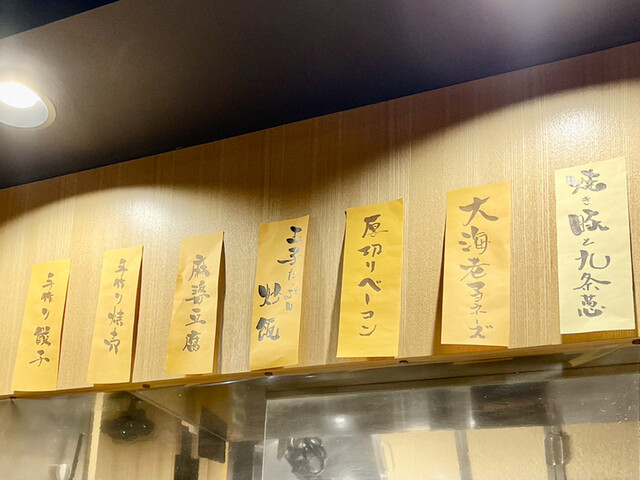 焼き豚と九条葱
大海老マヨネーズ
厚切りベーコン
炒飯
麻婆豆腐
手作り焼売
手作り餃子